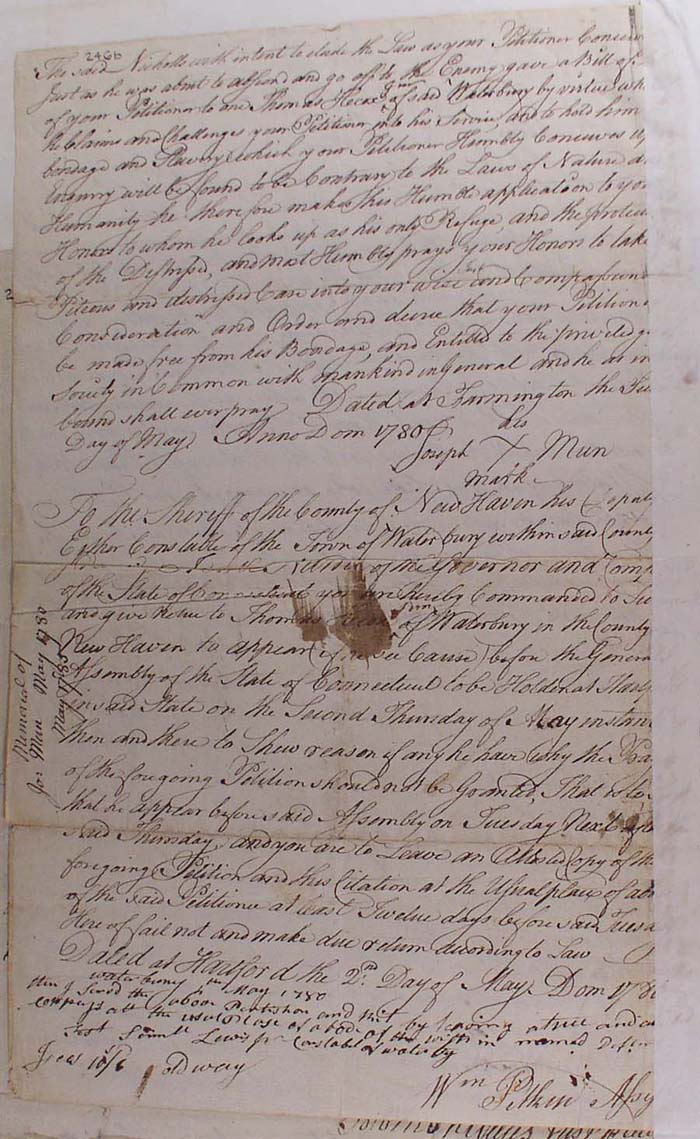 246b
The said Nicholls with intent to elude the Law as your Petitioner Conceiv
Just as he was about to abscond and go off to the Enemy gave a Bill of
of your Petitioner to one Thomas Hecox Jun of said Waterbury by virtue wh
he Claims and Challenges your Petitioner into his Service, and to hold him
bondage and Slavery which your Petitioner Humbly Conceives up
Enquiry will be found to be Contrary to the Laws of Nature a
Humanity he therefore makes this Humble application to you
Honors to whom he looks up as his only Refuge, and the protec
of the Distressed, and most Humbly prays your Honors to take
Piteous and distressed Case into your wise and Compassiona
Consideration and Order and decree that your Petition
be made free from his Bondage, and Entitled to the priviledge
Society in Common with mankind in General and he as in
bound shall ever pray Dated at Farmington the
Day of May Anno Dom 1780
his
Joseph X Mun
mark
To the Sheriff of the County of New Haven his Deputy
Either Constable of the Town of Waterbury within said County
of the Governor and Comp
of the State of you are hereby Commanded to Su
and give Notice to Thomas Jun of Waterbury in the County
New Haven to appear (if he see Cause) before the Genera
Assembly of the State of Connecticut to be Holden at Hart
in said State on the Second Thursday of May instan
then and there to Shew reason if any he have why the Pra
of the foregoing Petition should not be Granted, That is to
that he appear before said Assembly on Tuesday Next after
said Thursday, and you are to Leave an Attested Copy of th
foregoing Petition and this Citation at the Usual place of abo
of the said Petitionee at least Twelve days before said Tuesd
Here of fail not and make due return according to Law
Dated at Hartford the 2nd Day of May Dom 178
Waterbury May 1780
then I Sarvd the aboov Pertishon and by leaving a true and
at the usual place of abode of the with in named
Test Samll Lewis Jr Constabel of waterbry
Fees 10/6 old way
Wm Pitkin Assis
Memorial of
Jos Mun May 1780
May 1780
2